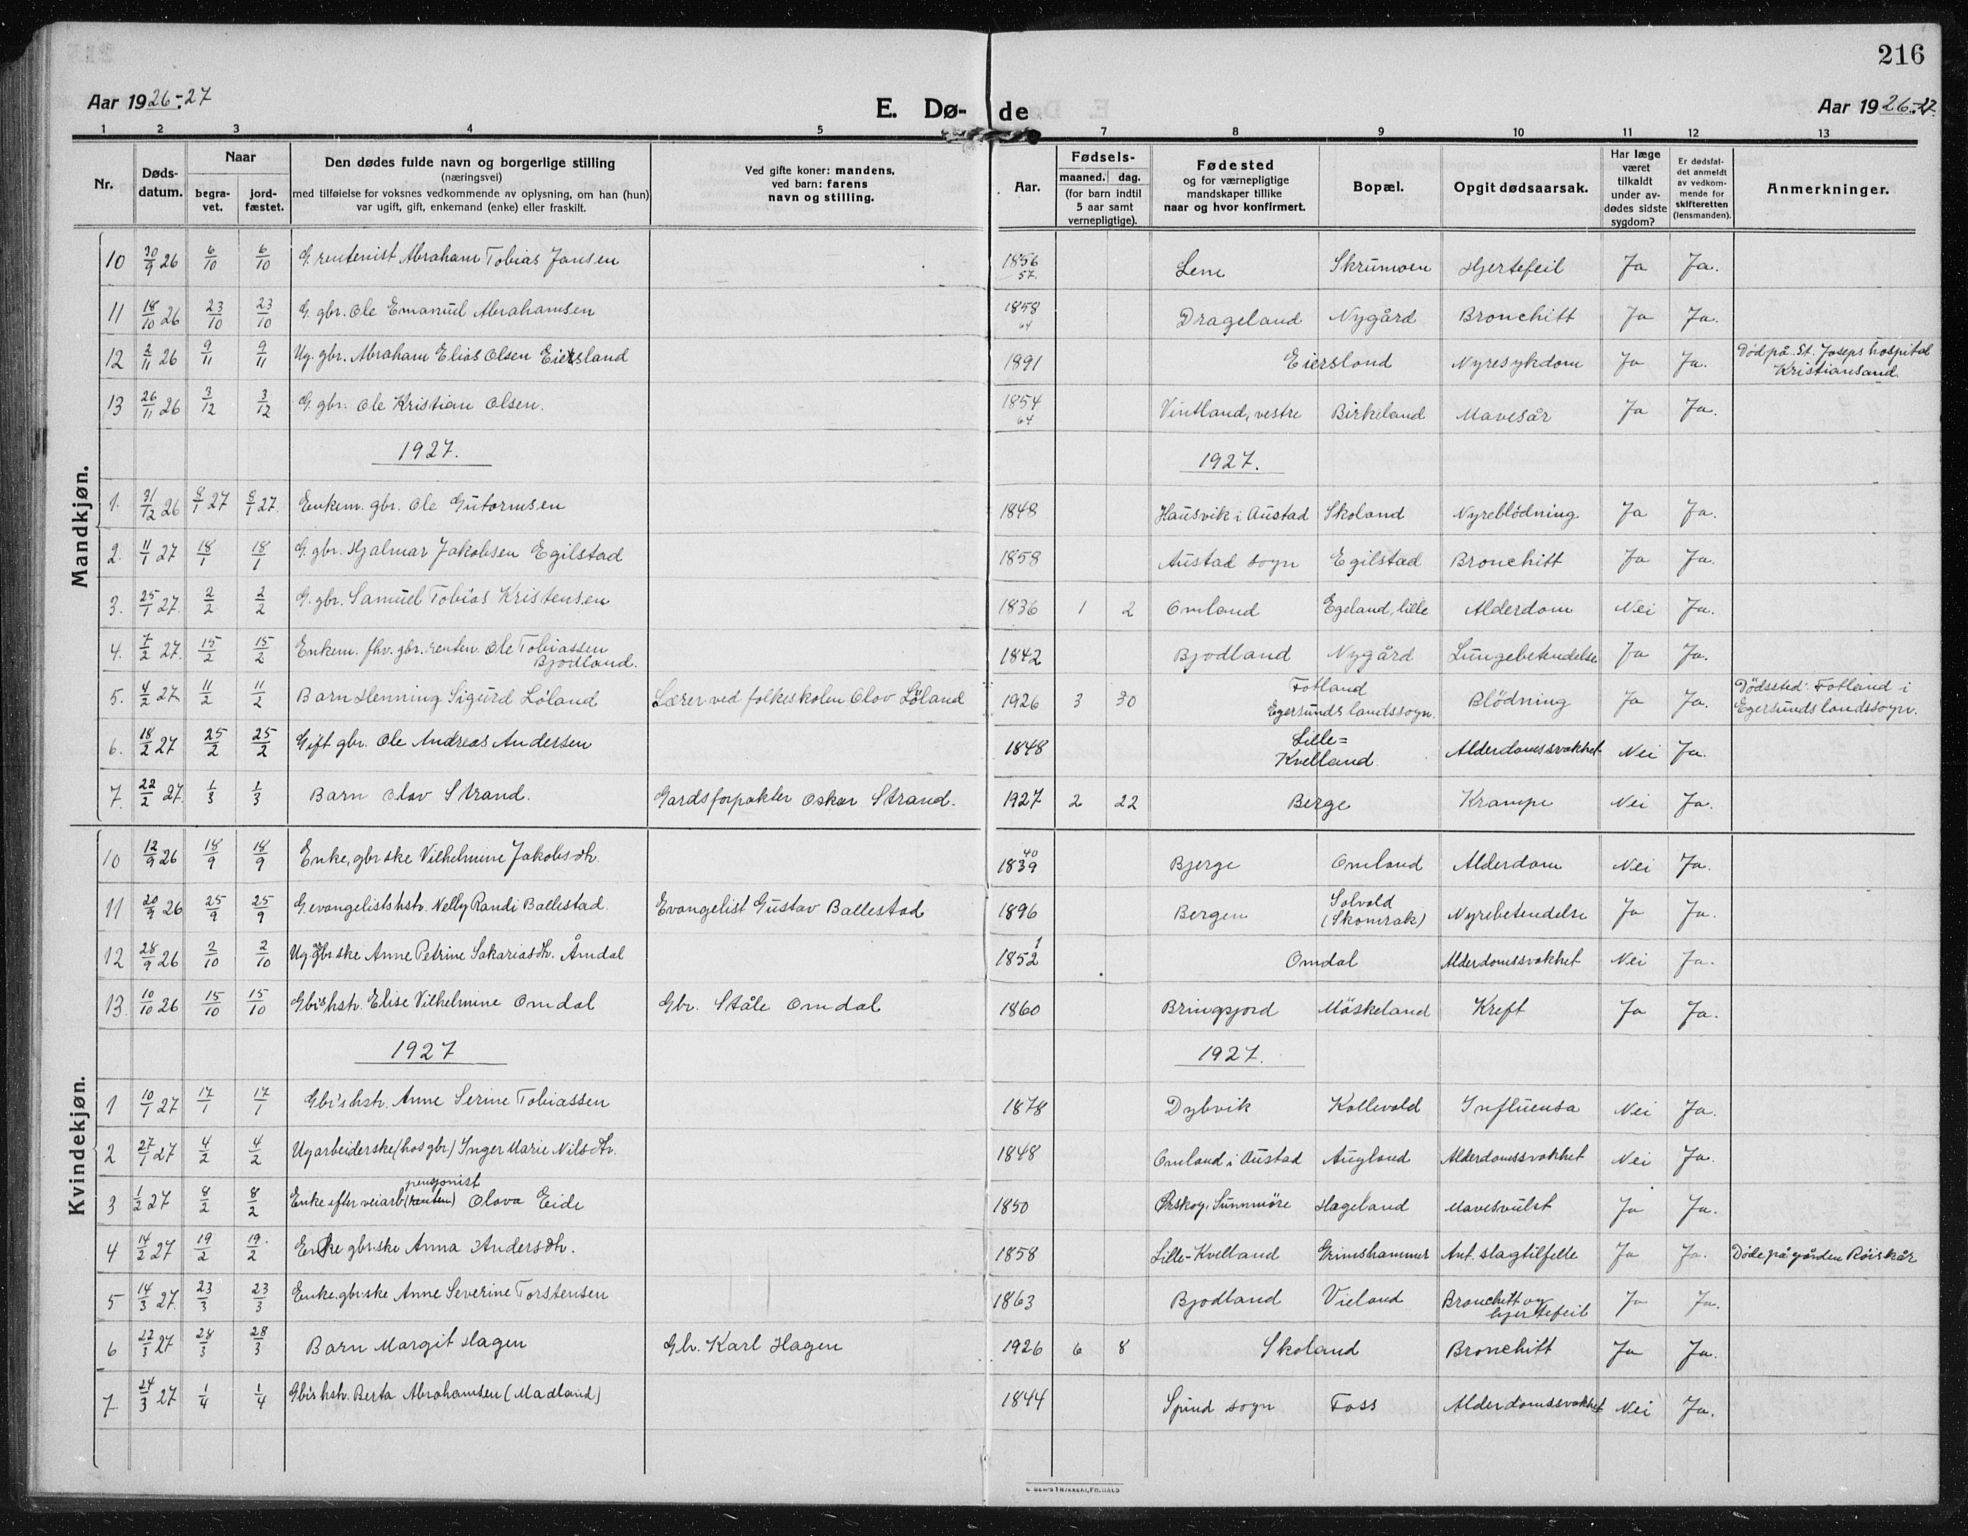 216
Aar 1926-27
E. Dø-de
Aar 1926-27.
1 2 3 4 5 7 8 9 10 11 12 13
Nr.
Døds-datum.
Naar
begra-vet.
jord-fæstet.
Den dødes fulde navn og borgerlige stilling
(næringsvei)
med tilføielse for voksnes vedkommende av oplysning, om han (hun)
var ugift, gift, enkemand (enke) eller fraskilt.
Ved gifte koner: mandens,
ved barn: farens
navn og stilling.
Aar.
Fødsels-
maaned. dag.
(for barn indtil
5 aar samt
vernepligtige).
Fødested
og for værnepligtige
mandskaper tillike
naar og hvor konfirmert.
Bopæl.
Opgit dødsaarsak.
Har læge
været
tilkaldt
under av-
dødes sidste
sygdom?
Er dødsfal-
det anmeldt
av vedkom-
mende for
skifteretten
(lensmanden).
Anmerkninger.
Mandkjøn.
10 30/9 26 6/10 6/10 G. rentenist Abraham Tobias Jansen 1856 57. Lene Skrumoen Hjertefeil Ja Ja.
11 18/10 26 23/10 23/10 G. gbr. Ole Emanuel Abrahamsen 1858 64 Drageland Nygård Bronchitt Ja Ja.
12 2/11 26 9/11 9/11 Ug. gbr. Abraham Elias Olsen Eiersland 1891 Eiersland Nyresykdom Ja Ja. Død på St. Joseps hospital Kristiansand.
13 26/11 26 3/12 3/12 G. gbr. Ole Kristian Olsen. 1854 64 Vintland, vestre Birkeland Mavesår Ja Ja.
1927. 1927.
1. 31/12 26 8/1 27 8/1 27. Enkem. gbr. Ole Gutormsen 1848 Hausvik i Austad Skoland Nyreblödning Ja Ja.
2. 11/1 27 18/1 18/1 G. gbr. Hjalmar Jakobsen Egilstad 1858 Austad sogn Egilstad Bronchitt Ja Ja.
3. 25/1 27. 2/2 2/2 G. gbr. Samuel Tobias Kristensen 1836 1 2 Omland Egeland, lille Alderdom Nei Ja.
4. 7/2 27. 15/2 15/2 Enkem. fhv. gbr. renten. Ole Tobiassen Bjodland. 1842 Bjodland Nygård Lungebetendelse Ja Ja.
5. 4/2 27. 11/2 11/2 Barn Henning Sigurd Löland Lærer ved folkeskolen Olov Löland 1926 3 30 Fotland Egersunds landssogn. Blödning Ja Ja. Dödssted: Fotland i Egersunds landssogn.
6. 18/2 27 25/2 25/2 Gift gbr. Ole Andreas Andersen 1848 Lille= Kvelland. Alderdomssvakhet Nei Ja.
7. 22/2 27. 1/3 1/3 Barn Olav Strand. Gardsforpakter Oskar Strand. 1927 2 22 Berge Krampe Nei Ja.
Kvindekjøn.
10 12/9 26 18/9 18/9 Enke, gbrske Vilhelmine Jakobsdtr. 1839 40 Bjerge Omland Alderdom Nei Ja.
11 20/9 26 25/9 25/9 G. evangelistshstr. Nelly Randi Ballestad. Evangelist Gustav Ballestad 1896 Bergen Solvold (Skomrak) Nyrebetendelse Ja Ja.
12 28/9 26 2/10 2/10 Ug. gbrske Anne Petrine Sakariasdtr. Åmdal 1852 1 Omdal Alderdomssvakhet Nei Ja.
13. 10/10 26 15/10 15/10 Gbr's hstr. Elise Vilhelmine Omdal Gbr. Ståle Omdal 1860 Bringsjord Möskeland Kreft Ja Ja.
1927 1927.
1 10/1 27 17/1 17/1 Gbr's hstr. Anne Serine Tobiassen 1878 Dybvik Kollevold Influensa Nei Ja.
2 27/1 27 4/2 4/2 Ug arbeiderske (hos gbr) Inger Marie Nilsdtr. 1848 Omland i Austad Augland Alderdomssvakhet Nei Ja.
3 1/2 27 8/2 8/2 Enke efter veiarb (renten) pensjonist Olava Eide 1850 Ørskog, Sunnmöre Hageland Mavesvulst Ja Ja.
4 14/2 27 19/2 19/2 Enke gbrske Anna Andersdtr. 1858 Lille-Kvelland Grimshammer Ant. slagtilfelle Ja Ja. Døde på gården Röiskår
5 14/3 27. 23/3 23/3 Enke. gbrske Anne Severine Torstensen 1863 Bjodland Vieland Bronchitt og hjertefeil Ja Ja.
6 22/3 27 28/3 28/3 Barn Margit Hagen Gbr. Karl Hagen 1926 6 8 Skoland Bronchitt Ja Ja.
7. 24/3 27 1/4 1/4 Gbr's hstr. Berta Abrahamsen (Madland) 1844 Spind sogn Foss Alderdomssvakhet Nei Ja.